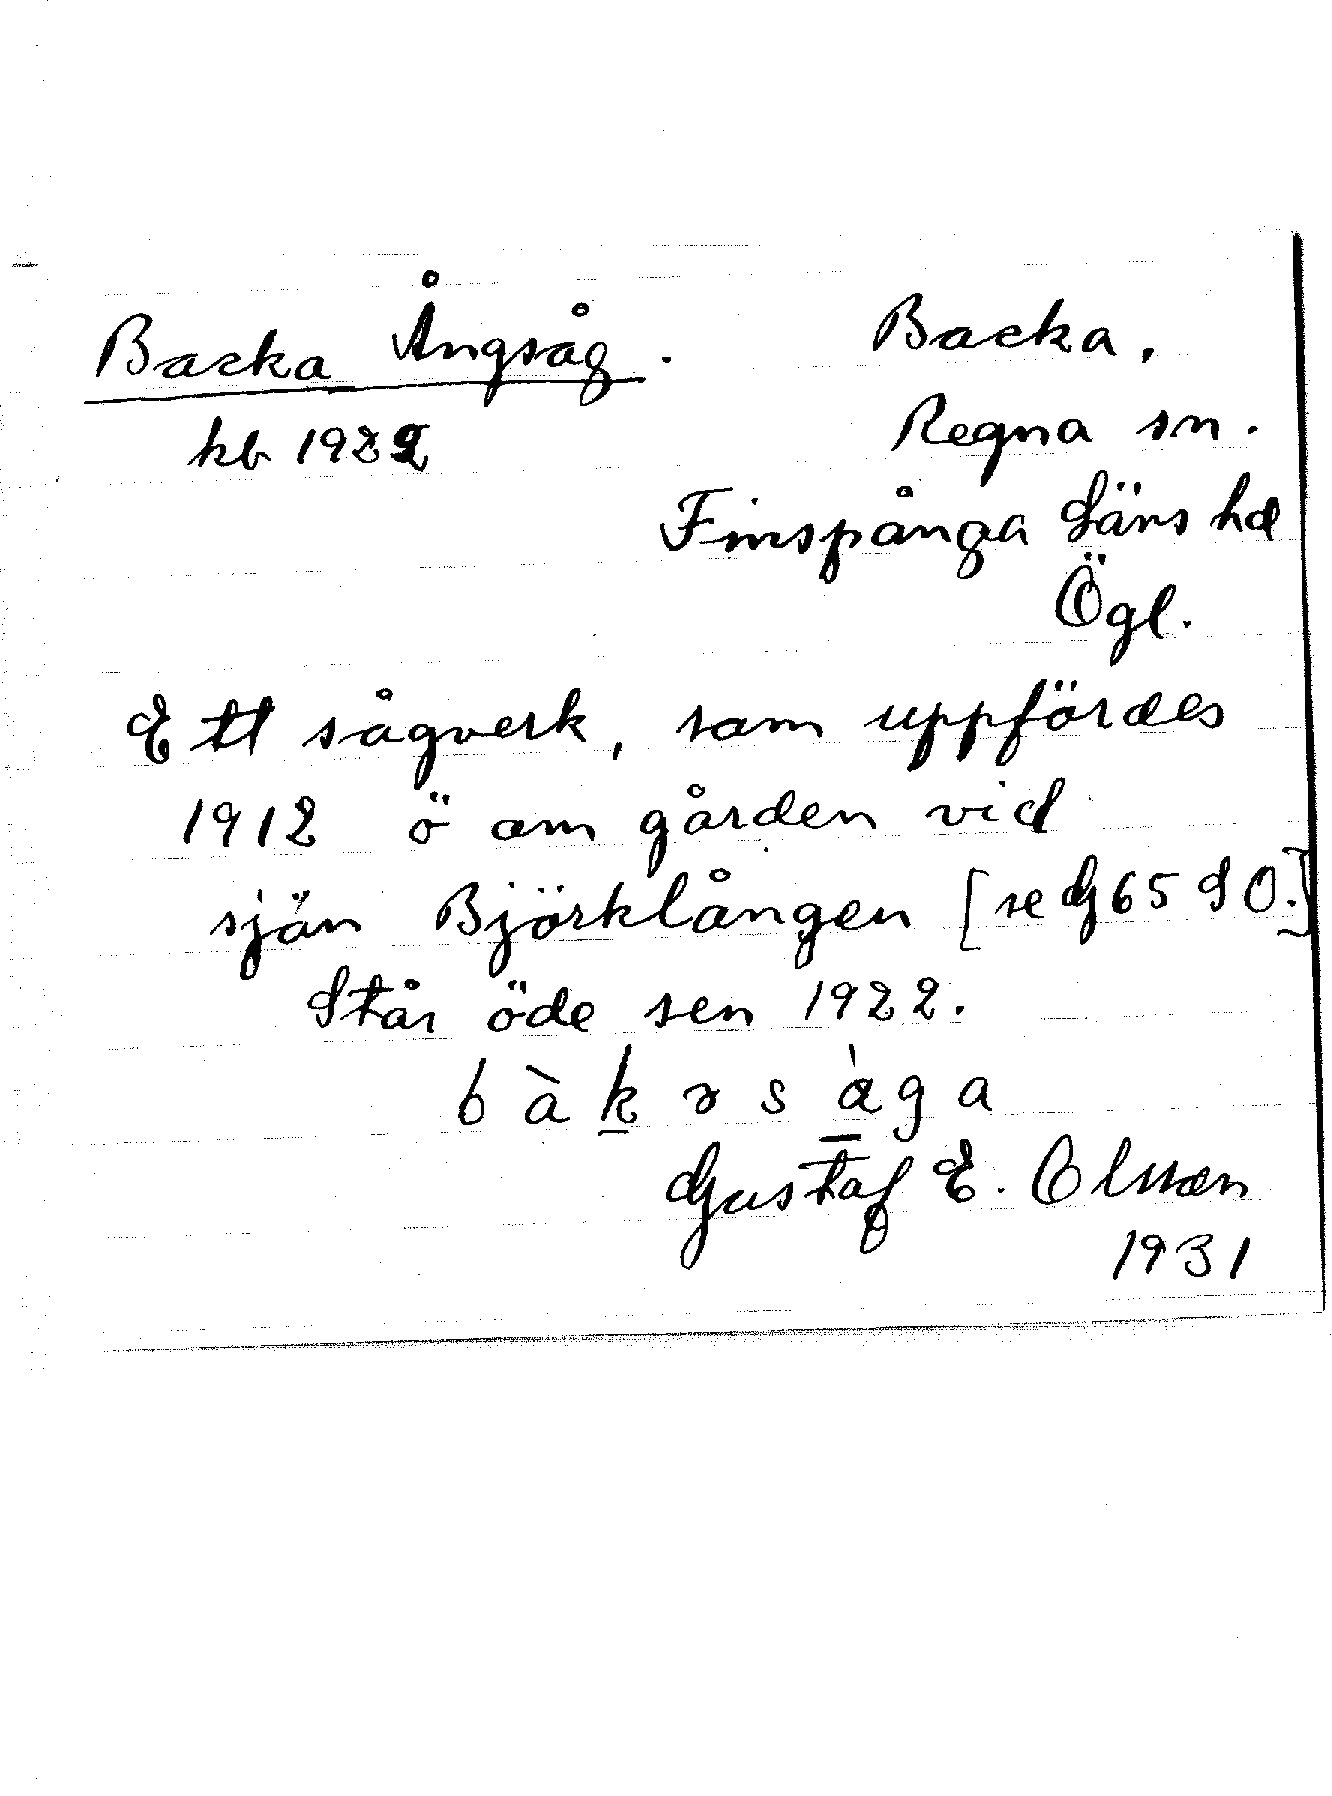 Backa Ångsåg.
kb 1922
Backa,
Regna sn.
Finspånga Läns hd
Ögl.
Ett sågverk, som uppfördes
1912 ö om gården vid
sjön Björklången [se G65 SO.]
Står öde sen 1922.
bàkəsàga
Gustaf E. Olsson
1931